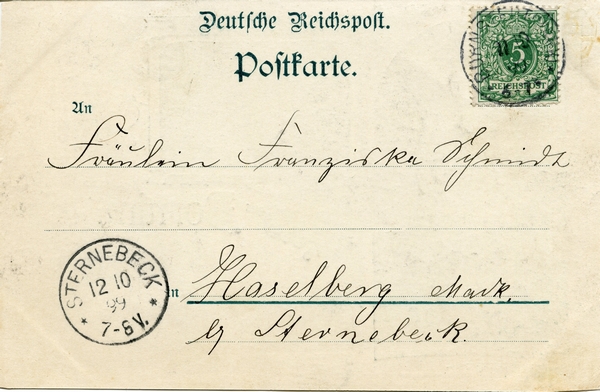 Deutsche Reichspost.
Postkarte.
5
REICHSPOST
An
Fräulein Franziska Schmidt
in Haselberg Mark.
b/ Sternebeck.
STERNEBECK
12 10
99
* 7-8 V. *